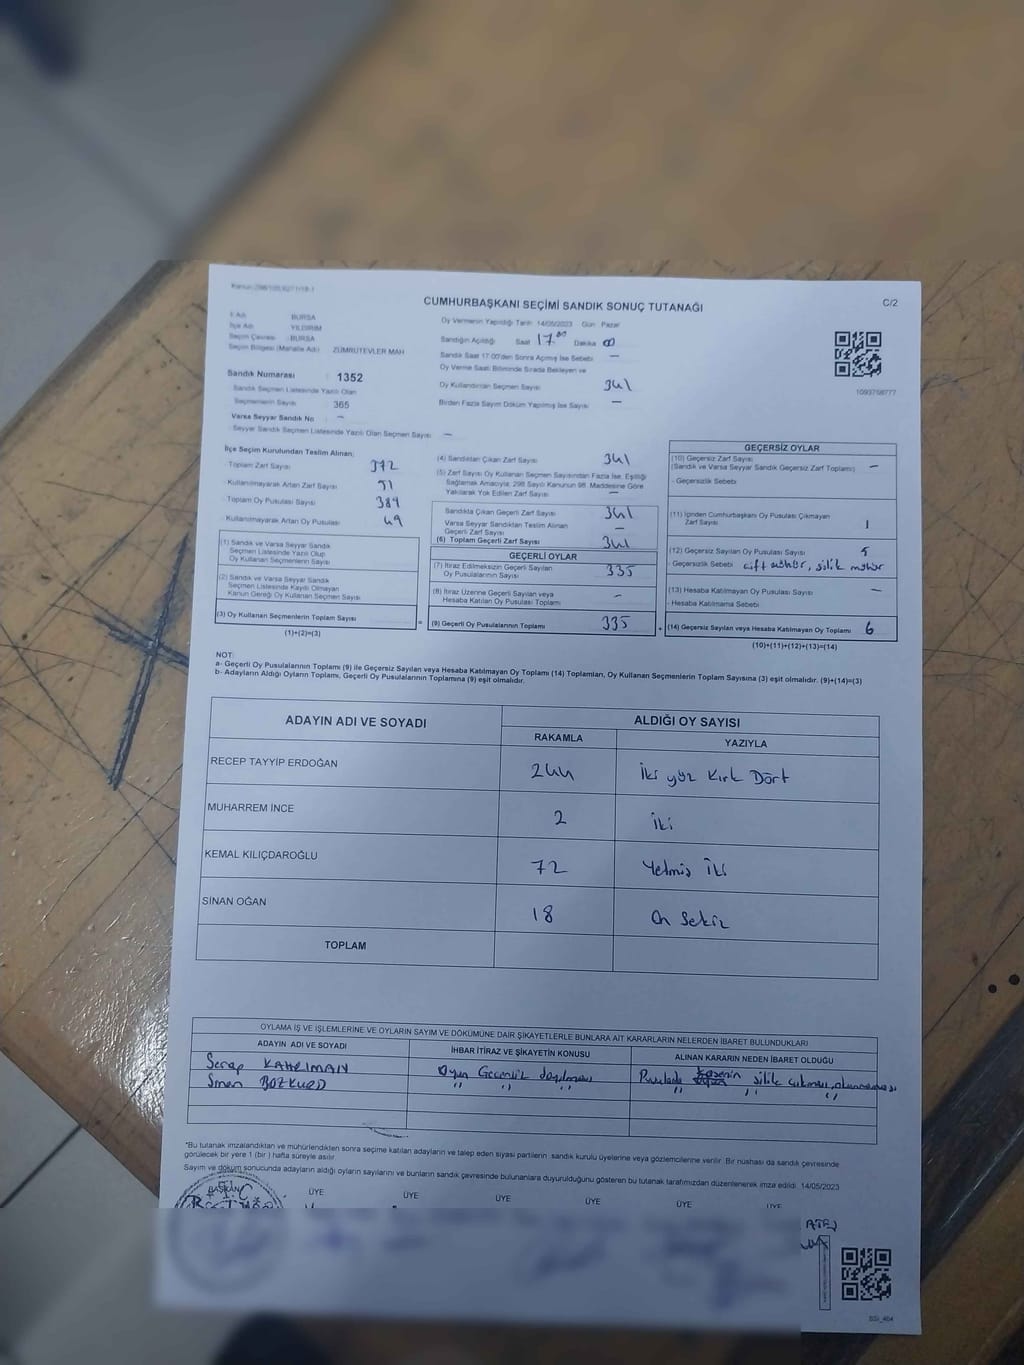 CUMHURBAŞKANI SEÇİMİ SANDIK SONUÇ TUTANAĞI
C/2
İl Adı : BURSA
İlçe Adı : YILDIRIM
Seçim Çevresi : BURSA
Seçim Bölgesi (Mahalle Adı) : ZÜMRÜTEVLER MAH
Sandık Numarası : 1352
Sandık Seçmen Listesinde Yazılı Olan
Seçmenlerin Sayısı : 365
Varsa Seyyar Sandık No : –
Seyyar Sandık Seçmen Listesinde Yazılı Olan Seçmen Sayısı : –
Oy Vermenin Yapıldığı Tarih 14/05/2023 Gün Pazar
Sandığın Açıldığı Saat 17 00 Dakika 00
Sandık Saat 17.00'den Sonra Açılmış İse Sebebi –
Oy Verme Saati Bitiminde Sırada Bekleyen ve
Oy Kullandırılan Seçmen Sayısı 341
Birden Fazla Sayım Döküm Yapılmış İse Sayısı –
1093758777
İlçe Seçim Kurulundan Teslim Alınan;
Toplam Zarf Sayısı 372
Kullanılmayarak Artan Zarf Sayısı 31
Toplam Oy Pusulası Sayısı 389
Kullanılmayarak Artan Oy Pusulası 49
(1) Sandık ve Varsa Seyyar Sandık
Seçmen Listesinde Yazılı Olup
Oy Kullanan Seçmenlerin Sayısı
(2) Sandık ve Varsa Seyyar Sandık
Seçmen Listesinde Kayıtlı Olmayan
Kanun Gereği Oy Kullanan Seçmen Sayısı
(3) Oy Kullanan Seçmenlerin Toplam Sayısı
(1)+(2)=(3)
(4) Sandıktan Çıkan Zarf Sayısı 341
(5) Zarf Sayısı Oy Kullanan Seçmen Sayısından Fazla İse, Eşitliği
Sağlamak Amacıyla, 298 Sayılı Kanunun 98. Maddesine Göre
Yakılarak Yok Edilen Zarf Sayısı –
Sandıkta Çıkan Geçerli Zarf Sayısı 341
Varsa Seyyar Sandıktan Teslim Alınan
Geçerli Zarf Sayısı –
(6) Toplam Geçerli Zarf Sayısı 341
GEÇERLİ OYLAR
(7) İtiraz Edilmeksizin Geçerli Sayılan
Oy Pusulalarının Sayısı 335
(8) İtiraz Üzerine Geçerli Sayılan veya
Hesaba Katılan Oy Pusulası Toplamı –
(9) Geçerli Oy Pusulalarının Toplamı 335
GEÇERSİZ OYLAR
(10) Geçersiz Zarf Sayısı
(Sandık ve Varsa Seyyar Sandık Geçersiz Zarf Toplamı) –
- Geçersizlik Sebebi
(11) İçinden Cumhurbaşkanı Oy Pusulası Çıkmayan
Zarf Sayısı 1
(12) Geçersiz Sayılan Oy Pusulası Sayısı 5
- Geçersizlik Sebebi çift mühür, silik mühür
(13) Hesaba Katılmayan Oy Pusulası Sayısı –
- Hesaba Katılmama Sebebi
(14) Geçersiz Sayılan veya Hesaba Katılmayan Oy Toplamı 6
(10)+(11)+(12)+(13)=(14)
NOT:
a- Geçerli Oy Pusulalarının Toplamı (9) ile Geçersiz Sayılan veya Hesaba Katılmayan Oy Toplamı (14) Toplamları, Oy Kullanan Seçmenlerin Toplam Sayısına (3) eşit olmalıdır. (9)+(14)=(3)
b- Adayların Aldığı Oyların Toplamı, Geçerli Oy Pusulalarının Toplamına (9) eşit olmalıdır.
ADAYIN ADI VE SOYADI ALDIĞI OY SAYISI
RAKAMLA YAZIYLA
RECEP TAYYİP ERDOĞAN 244 İki yüz Kırk Dört
MUHARREM İNCE 2 İki
KEMAL KILIÇDAROĞLU 72 Yetmiş İki
SİNAN OĞAN 18 On Sekiz
TOPLAM
OYLAMA İŞ VE İŞLEMLERİNE VE OYLARIN SAYIM VE DÖKÜMÜNE DAİR ŞİKAYETLERLE BUNLARA AİT KARARLARIN NELERDEN İBARET BULUNDUKLARI
ADAYIN ADI VE SOYADI İHBAR İTİRAZ VE ŞİKAYETİN KONUSU ALINAN KARARIN NEDEN İBARET OLDUĞU
Serap KAHRIMAN Oyun Geçerli silik çıkması
BOZKURD " " " " " "
*Bu tutanak imzalandıktan ve mühürlendikten sonra seçime katılan adayların ve talep eden siyasi partilerin sandık kurulu üyelerine veya gözlemcilerine verilir. Bir nüshası da sandık çevresinde
görülecek bir yere 1 (bir ) hafta süreyle asılır.
Sayım ve döküm sonucunda adayların aldığı oyların sayılarını ve bunların sandık çevresinde bulunanlara duyurulduğunu gösteren bu tutanak tarafımızdan düzenlenerek imza edildi. 14/05/2023
BAŞKAN ÜYE ÜYE ÜYE ÜYE ÜYE ÜYE
T.C.